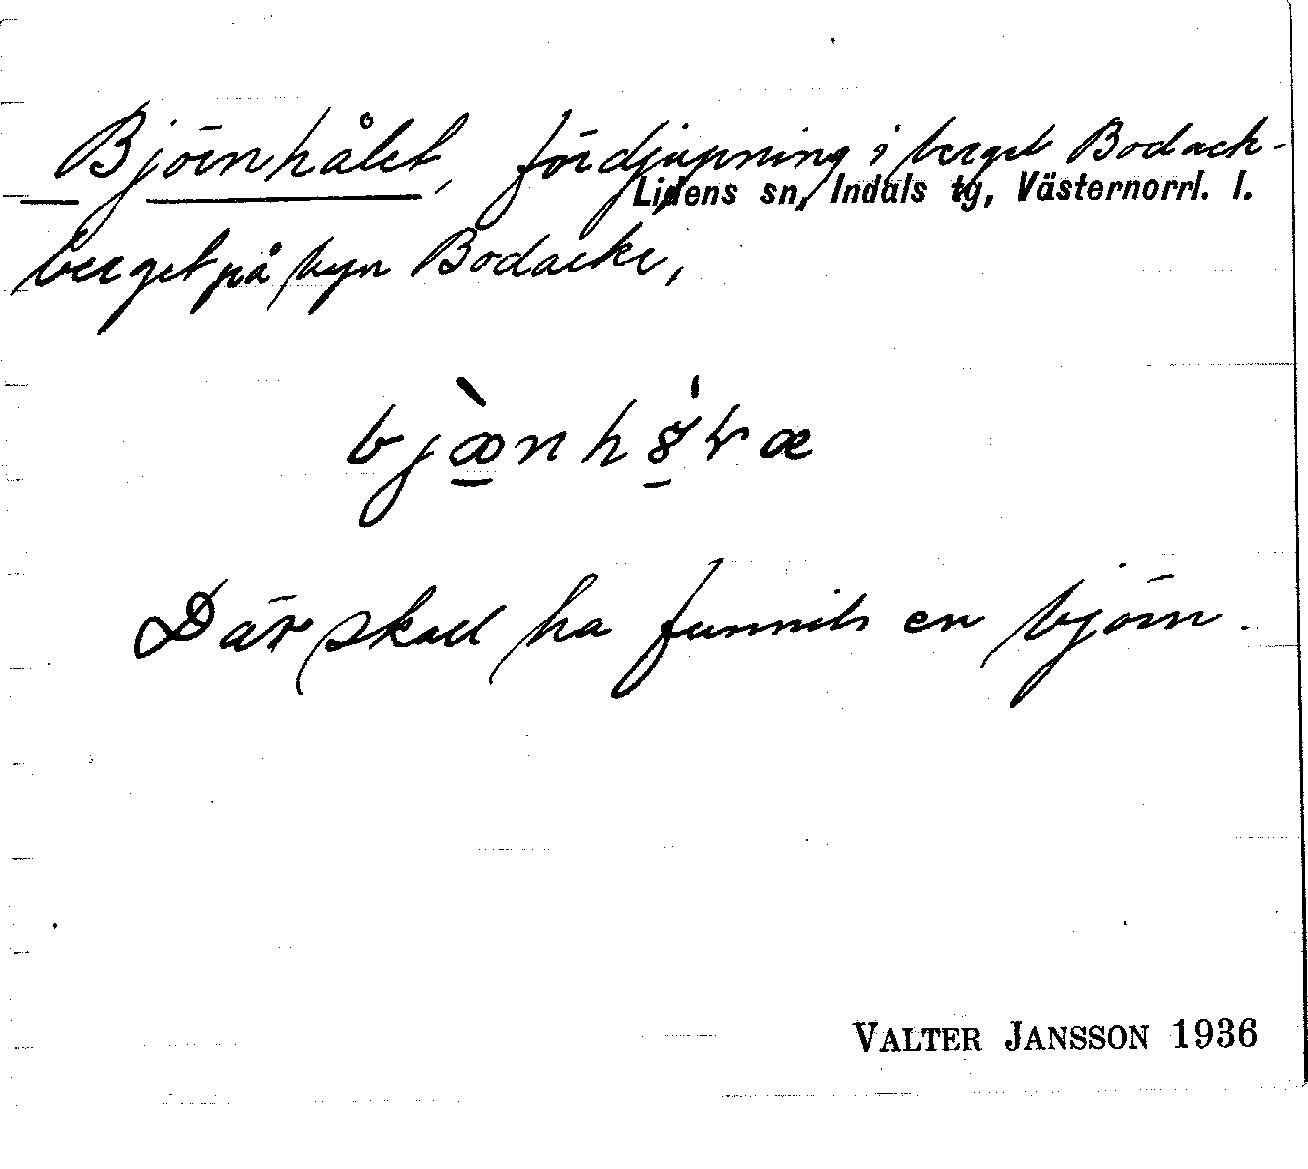 Björnhålet, fördjupning i berget Bodack-
Lidens sn, Indals tg, Västernorrl. l.
berget på byn Bodacke,
Där skall ha funnits en björn.
VALTER JANSSON 1936